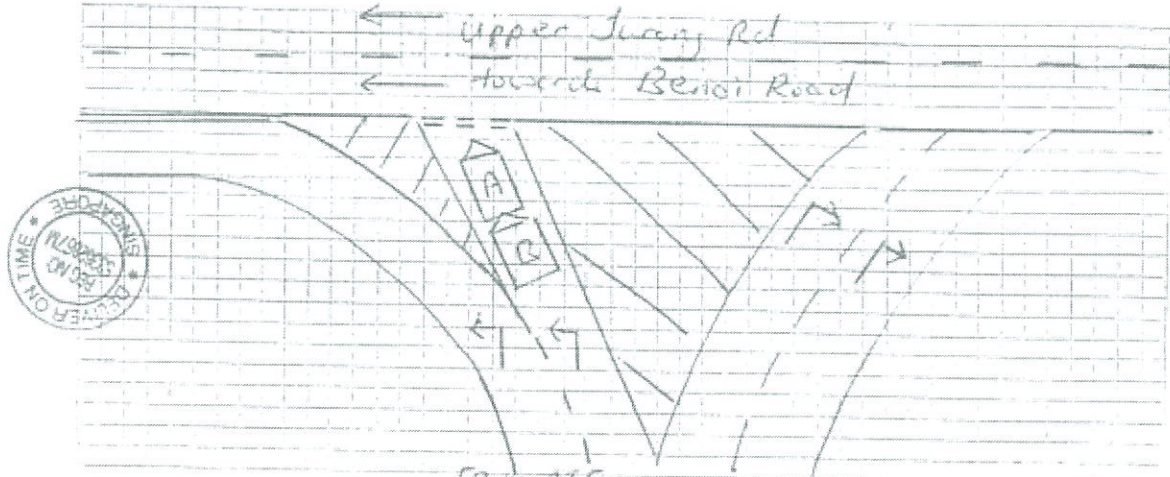 Upper Jurong Rd
towards Benoi Road
A
B
* DELIVER ON TIME *
SINGAPORE
REG NO.